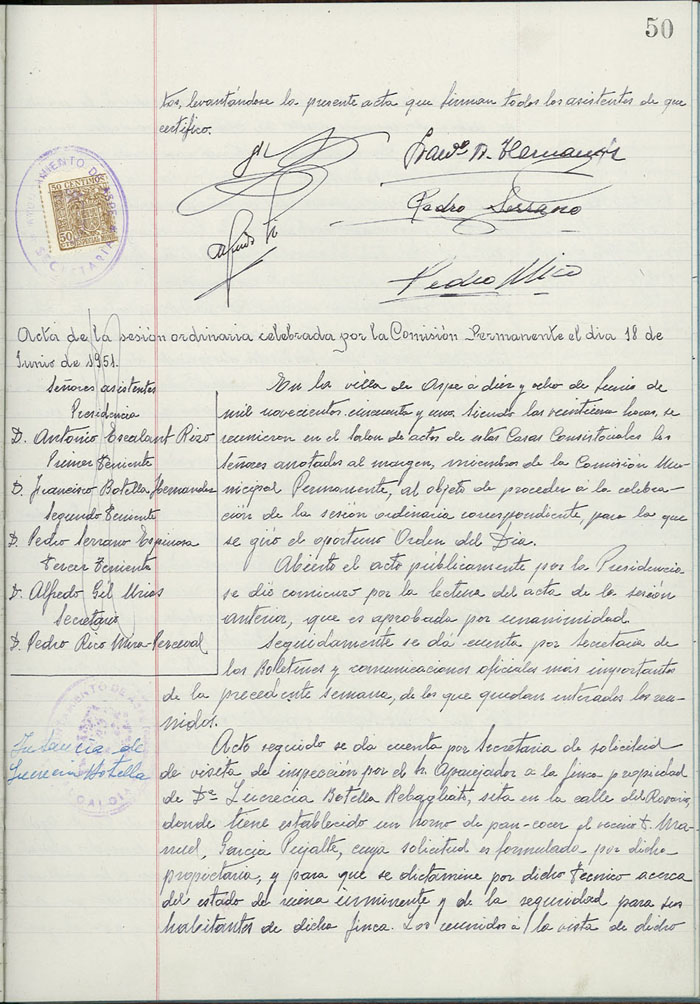 50
tos, levantándose la presente acta que firman todos los asistentes de que
certifico.
AYUNTAMIENTO DE ASPE
SECRETARIA
50 CENTIMOS
50
Franco B. Hernandez
Pedro Serrano
Alfredo
Pedro Rico
Acta de la sesión ordinaria celebrada por la Comisión Permanente el dia 18 de
Junio de 1951.
Señores asistentes
Presidencia
D. Antonio Escalant Rizo
Primer Teniente
D. Francisco Botella Hernandez
Segundo Teniente
D. Pedro Serrano Espinosa
Tercer Teniente
D. Alfredo Gil Urios
Secretario
D. Pedro Rico Mira-Perceval
En la villa de Aspe a diez y ocho de Junio de
mil novecientos cincuenta y uno, siendo las veintiuna horas, se
reunieron en el Salon de actos de estas Casas Consistoriales los
señores anotados al margen, miembros de la Comisión Mu-
nicipal Permanente, al objeto de proceder á la celebra-
ción de la sesión ordinaria correspondiente, para la que
se giró el oportuno Orden del Día.
Abierto el acto públicamente por la Presidencia
se dió comienzo por la lectura del acta de la sesión
anterior, que es aprobada por unanimidad.
Seguidamente se da cuenta por Secretaría de
los Boletines y comunicaciones oficiales más importantes
de la precedente semana, de los que quedan enterados los reu-
nidos.
Instancia de
Lucrecia Botella
Acto seguido se da cuenta por Secretaría de solicitud
de visita de inspección por el Sr. Aparejador a la finca propiedad
de Dª Lucrecia Botella Rebagliato, sita en la calle del Rosario,
donde tiene establecido un horno de pan-cocer el vecino D. Ma-
nuel García Pujalte, cuya solicitud es formulada por dicha
propietaria, y para que se dictamine por dicho Tecnico acerca
del estado de ruina inminente y de la seguridad para sus
habitantes de dicha finca. Los reunidos á la vista de dicho